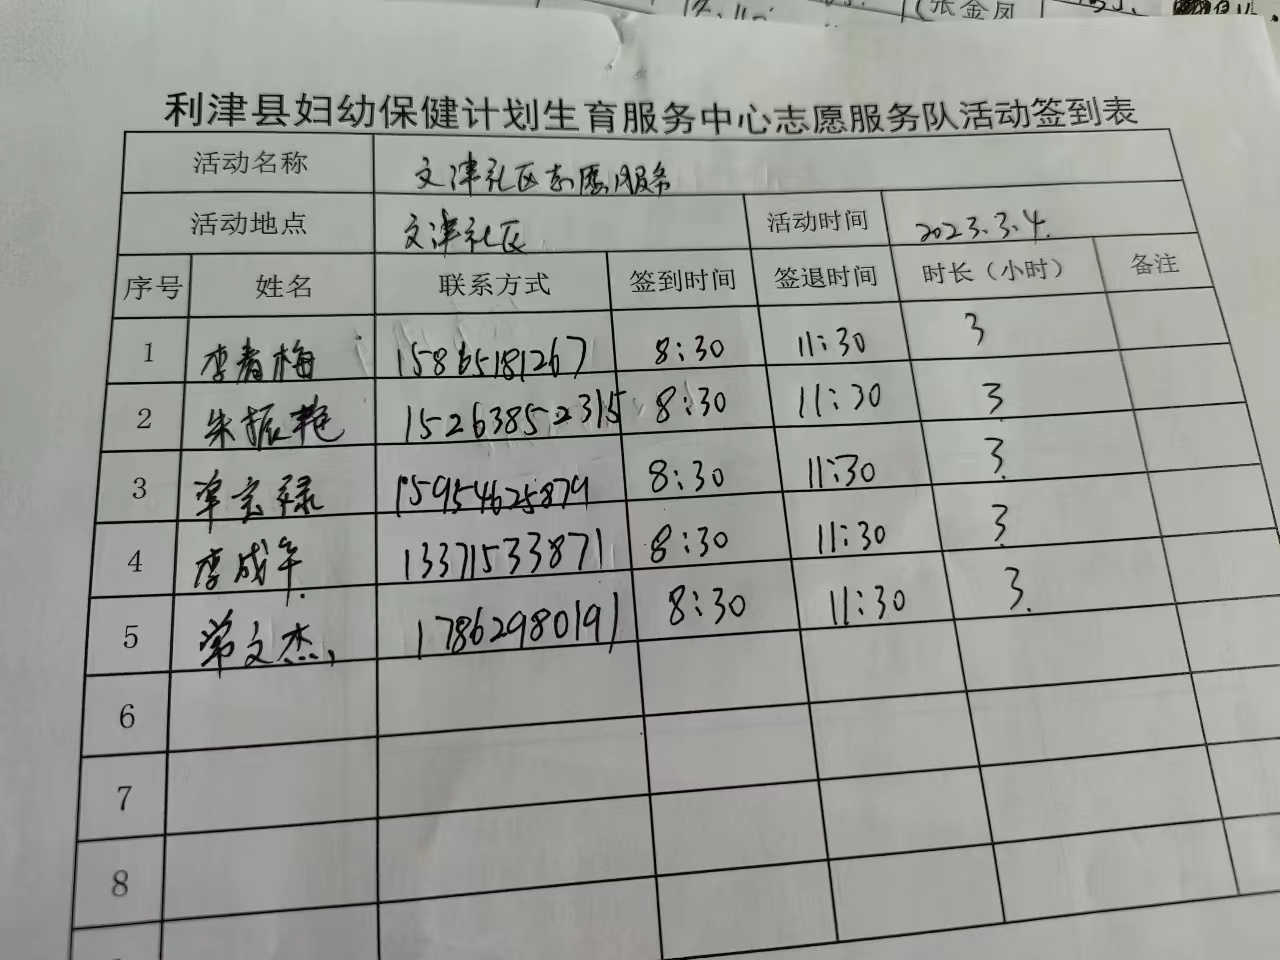 张金凤
利津县妇幼保健计划生育服务中心志愿服务队活动签到表
活动名称 文津社区志愿服务
活动地点 文津社区 活动时间 2023.3.4.
序号 姓名 联系方式 签到时间 签退时间 时长（小时） 备注
1 李青梅 15865181267 8:30 11:30 3
2 朱振艳 15263852315 8:30 11:30 3
3 15954625879 8:30 11:30 3.
4 李成年. 13371533871 8:30 11:30 3.
5 常文杰, 17862980191 8:30 11:30 3.
6
7
8